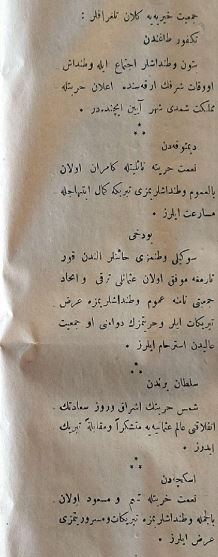 جمعيت خيريه‌يه كلان تلغرافلر :
تكفور طاغندن
بتون وطنداشلر اجتماع ايله وطنداش
شرفك آرقه‌سنده اعلان حريتله
مملكت شمدى شهر آيين ايچنده‌در .
ديمتوقه‌دن
نعمت حريته نائليتله كامران اولان
بالعموم وطنداشلريمزى تبريكه كمال ابتهاجله
مسارعت ايلرز .
سوكيلى وطنمزى خائنلر الندن قور
تارمغه موفق اولان عثمانلى ترقى و اتحاد
جمعيتى نامنه عموم وطنداشلريمزه عرض
تبريكات ايلر و حريتمزك دوامنى او جمعيت
عاليدن استرحام ايلرز .
سلطان يرندن
شمس حريتك اشراق وروز سعادتك
انفلاقى عالم عثمانيه‌يه متشكراً ومقابلةً تبريك
ايدرز .
اسكچه‌دن
نعمت حريتله و مسعود اولان
بالجمله وطنداشلريمزه تبريكات ومسروريتمزى
عرض ايلرز .